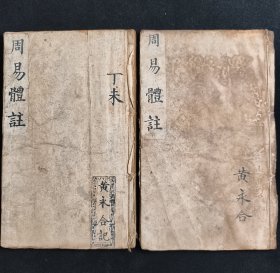 周易體註
丁未
黄永合記
周易體註
黄永合